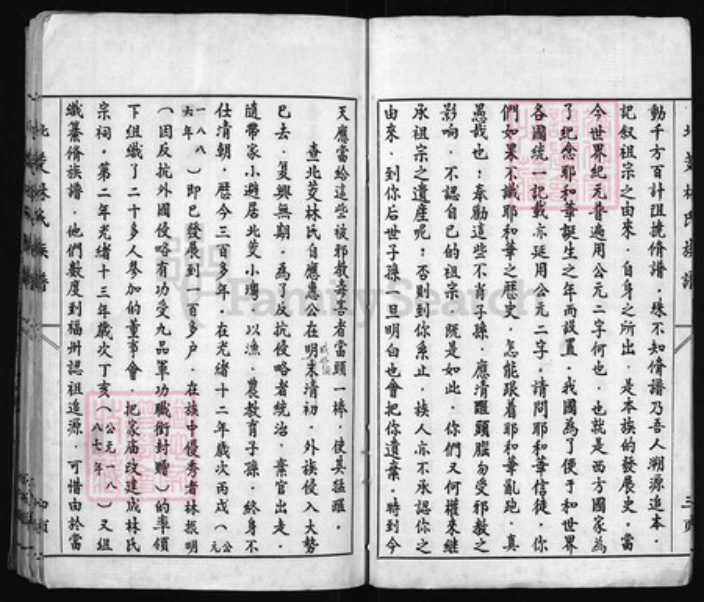 北茭林氏族譜
三頁
動千方百計阻撓脩譜．殊不知脩譜乃吾人溯源追本．
記叙祖宗之由來．自身之所出．是本族的發展史．當
今世界紀元普遍用公元二字何也．也就是西方國家為
了紀念耶和華誕生之年而設置．我國為了便于和世界
各國統一記載亦延用公元二字．請問耶和華信徒．你
們如果不識耶和華之歷史．怎能跟着耶和華亂跑．真
愚哉也！奉勸這些不肖子孫．應清醒頭腦勿受邪教之
影响．不認自己的祖宗．既是如此．你們又何權來継
承祖宗之遺産呢？否則到你系止．族人亦不承認你之
由來．到你后世子孫一旦明白也會把你遺棄．時到今
天應當給這些被邪教毒害者當頭一棒．使其猛醒．
查北茭林氏自應惠公在明末清初．外族侵入大勢
已去．复興無期．為了反抗侵略者統治．棄官出走．
隨帶家小避居北茭小灣．以漁．農教育子孫．終身不
仕清朝．歷今三百多年．在光緒十二年歲次丙戌（公元
一八八六年）即已發展到一百多户．在族中優秀者林振明
（因反抗外國侵略有功受九品軍功職銜封贈）的率領
下組織了二十多人參加的董事會．把家庙改建成林氏
宗祠．第二年光緒十三年歲次丁亥（公元一八八七年）又組
織纂脩族譜．他們數度到福州認祖追源．可惜由於當
北茭林氏族譜
四頁
FamilySearch